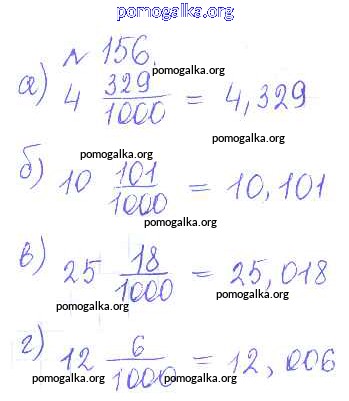 pomogalka.org
N 156.
pomogalka.org
а) 4 329/1000 = 4,329
pomogalka.org
pomogalka.org
б) 10 101/1000 = 10,101
pomogalka.org
в) 25 18/1000 = 25,018
pomogalka.org
pomogalka.org
г) 12 6/1000 = 12,006
pomogalka.org
pomogalka.org